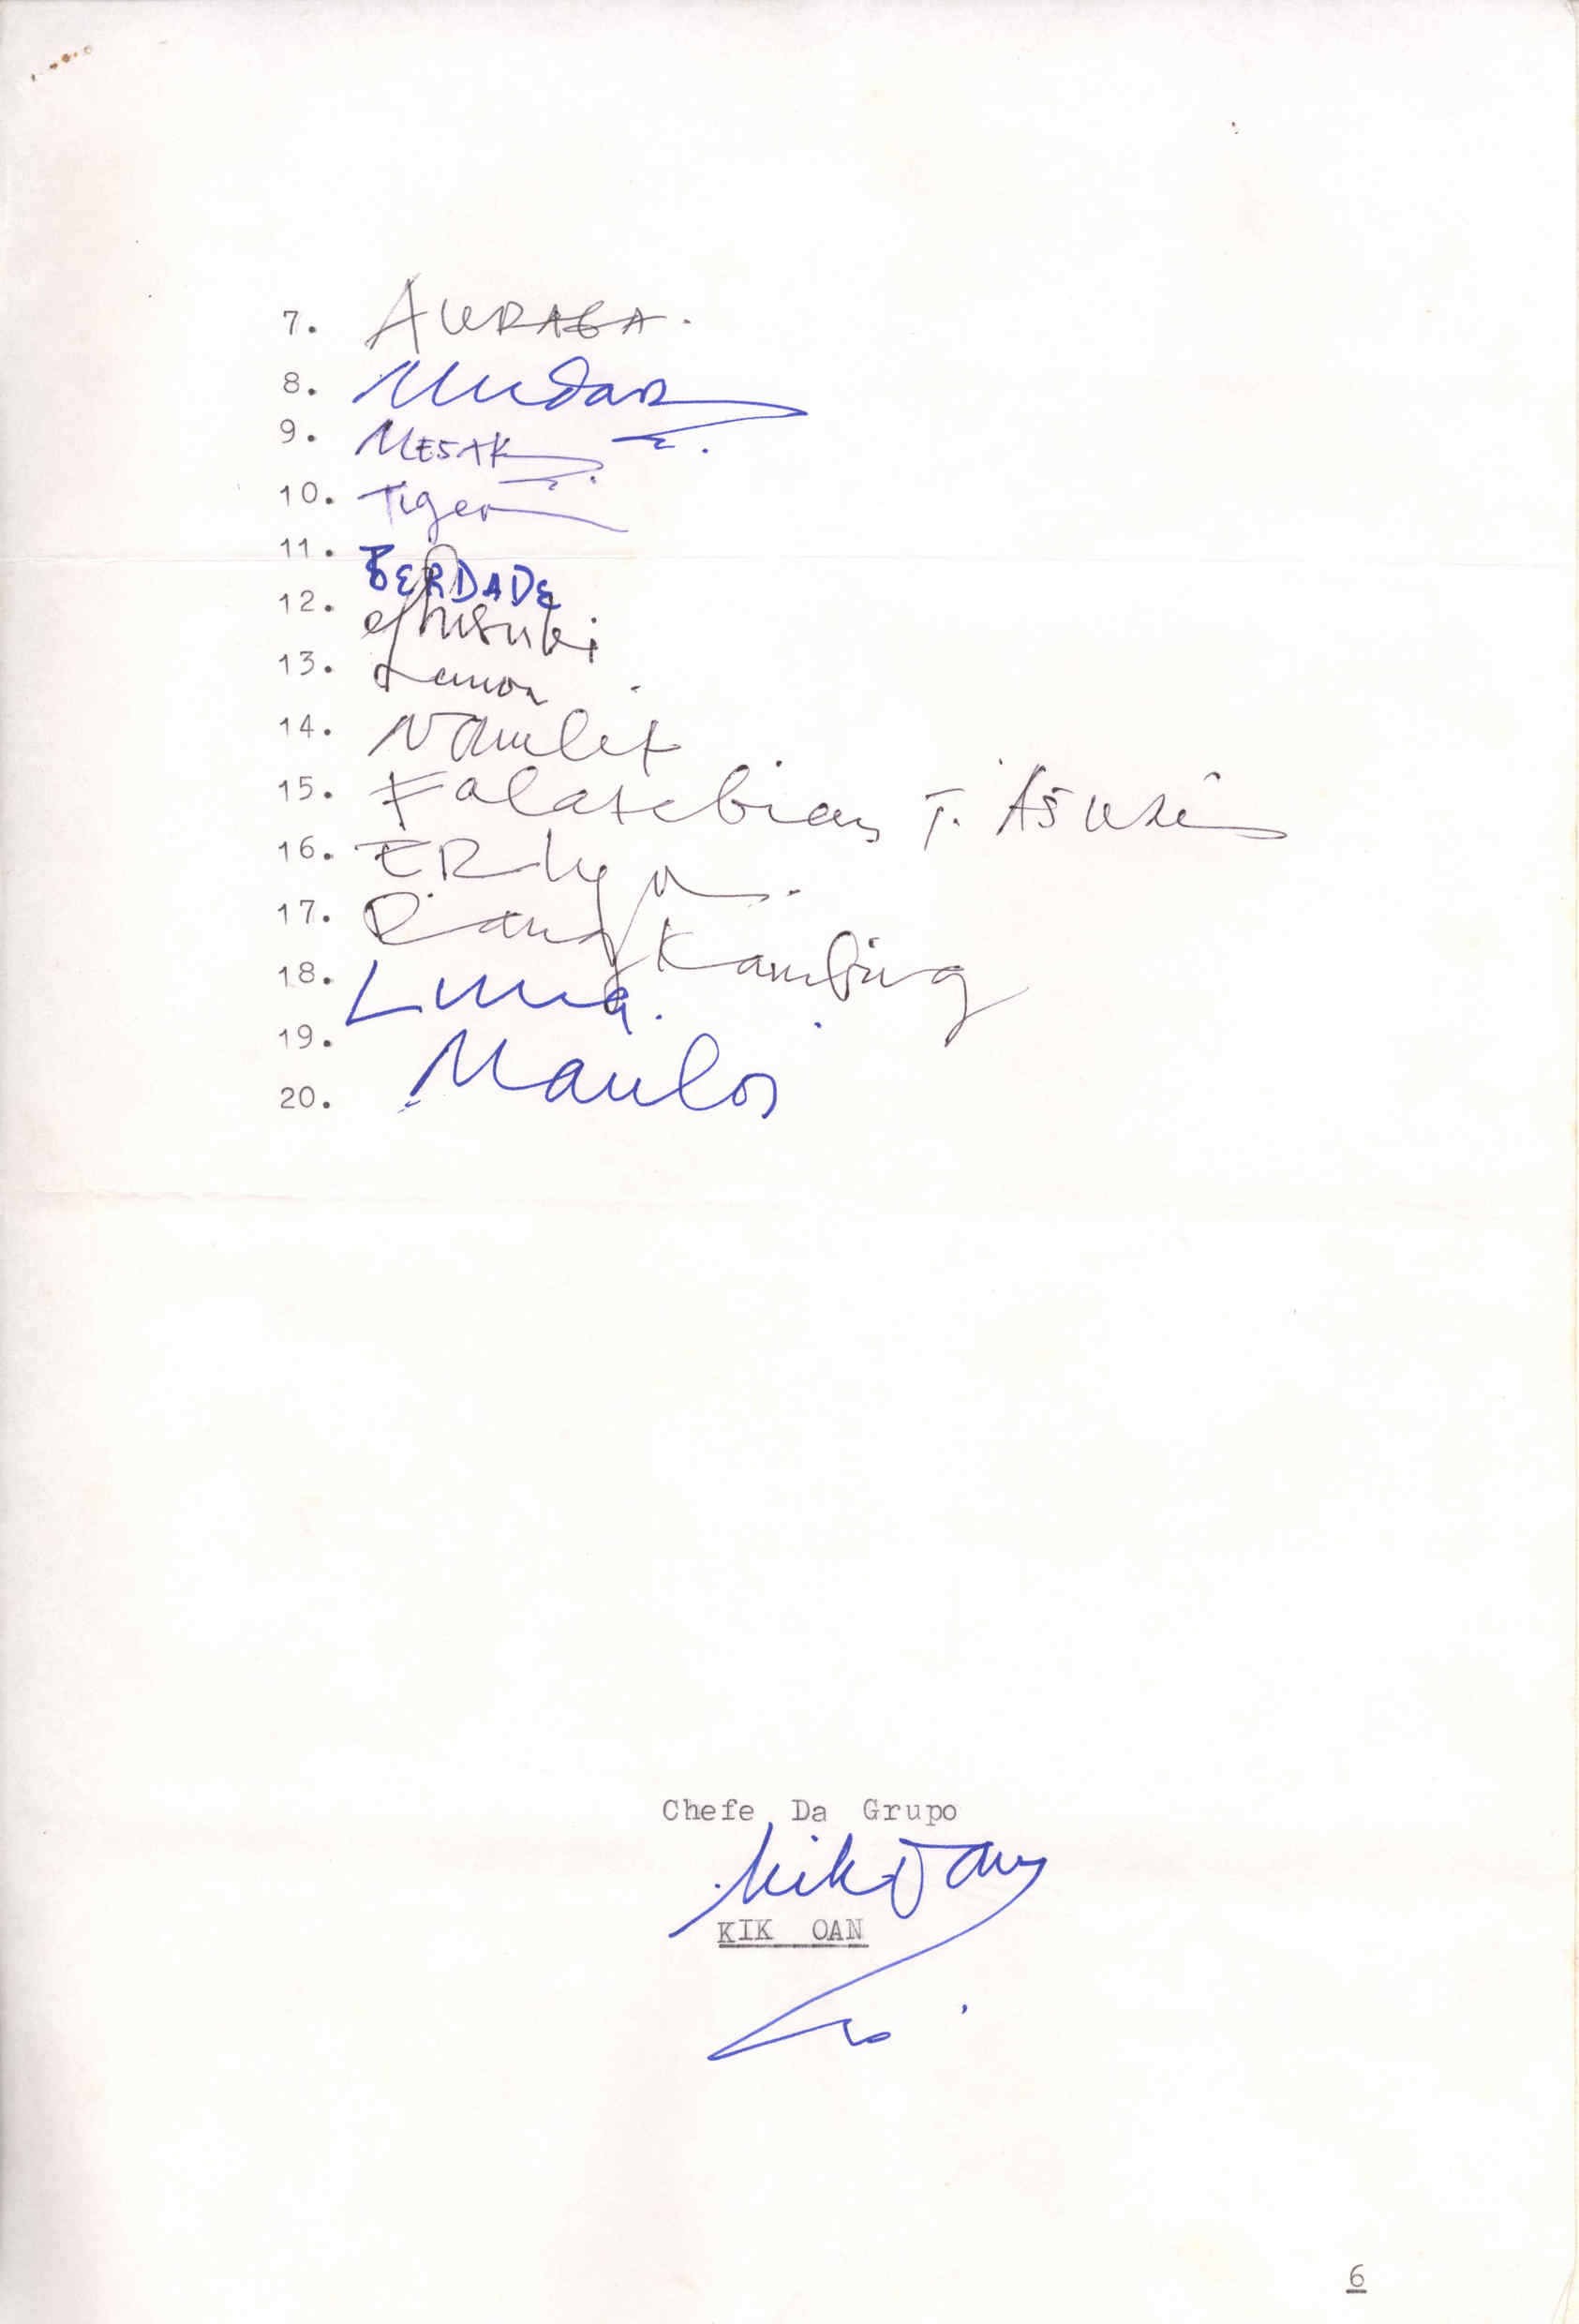 7. AURAGA.
8. Mudar
9. MESAK
10. Tiger
11. BERDADE
12.
13. Lemon
14. Namlet
15. Falatebian T.
16.
17. Rang Kambing
18. Luna.
19.
20. Maulos
Chefe Da Grupo
Kik Oan
KIK OAN
6